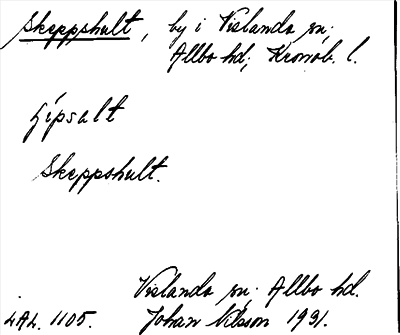 Skeppshult, by i Vislanda sn;
Allbo hd; Kronob. l.
Skeppshult.
Vislanda sn; Allbo hd.
LAL. 1105. Johan Nilsson 1931.